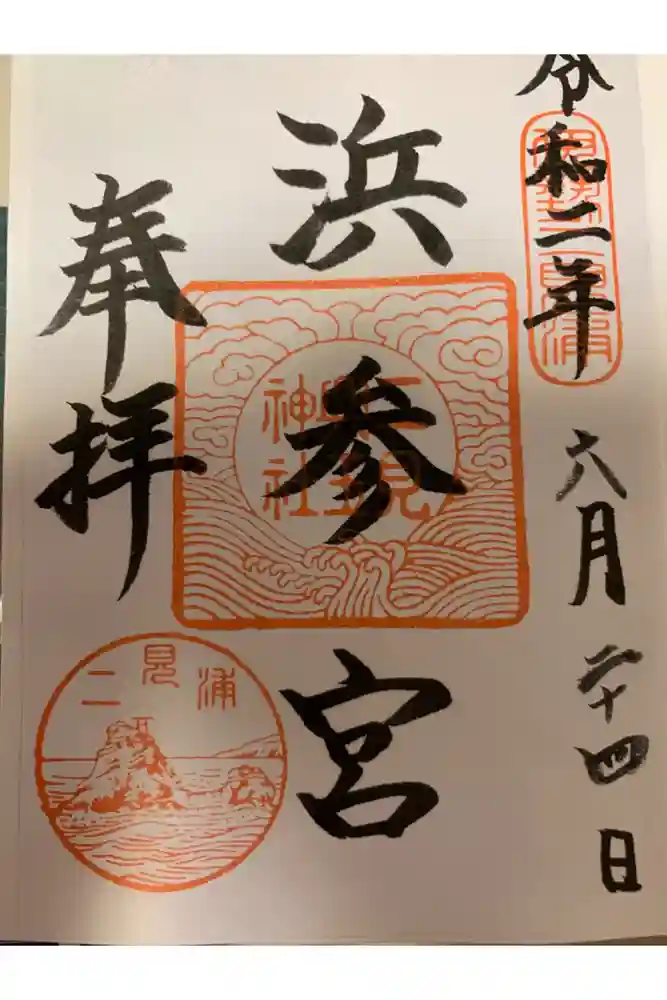 令和二年六月二十四日
伊勢二見浦
浜参宮
二見興玉神社
奉拝
二見浦